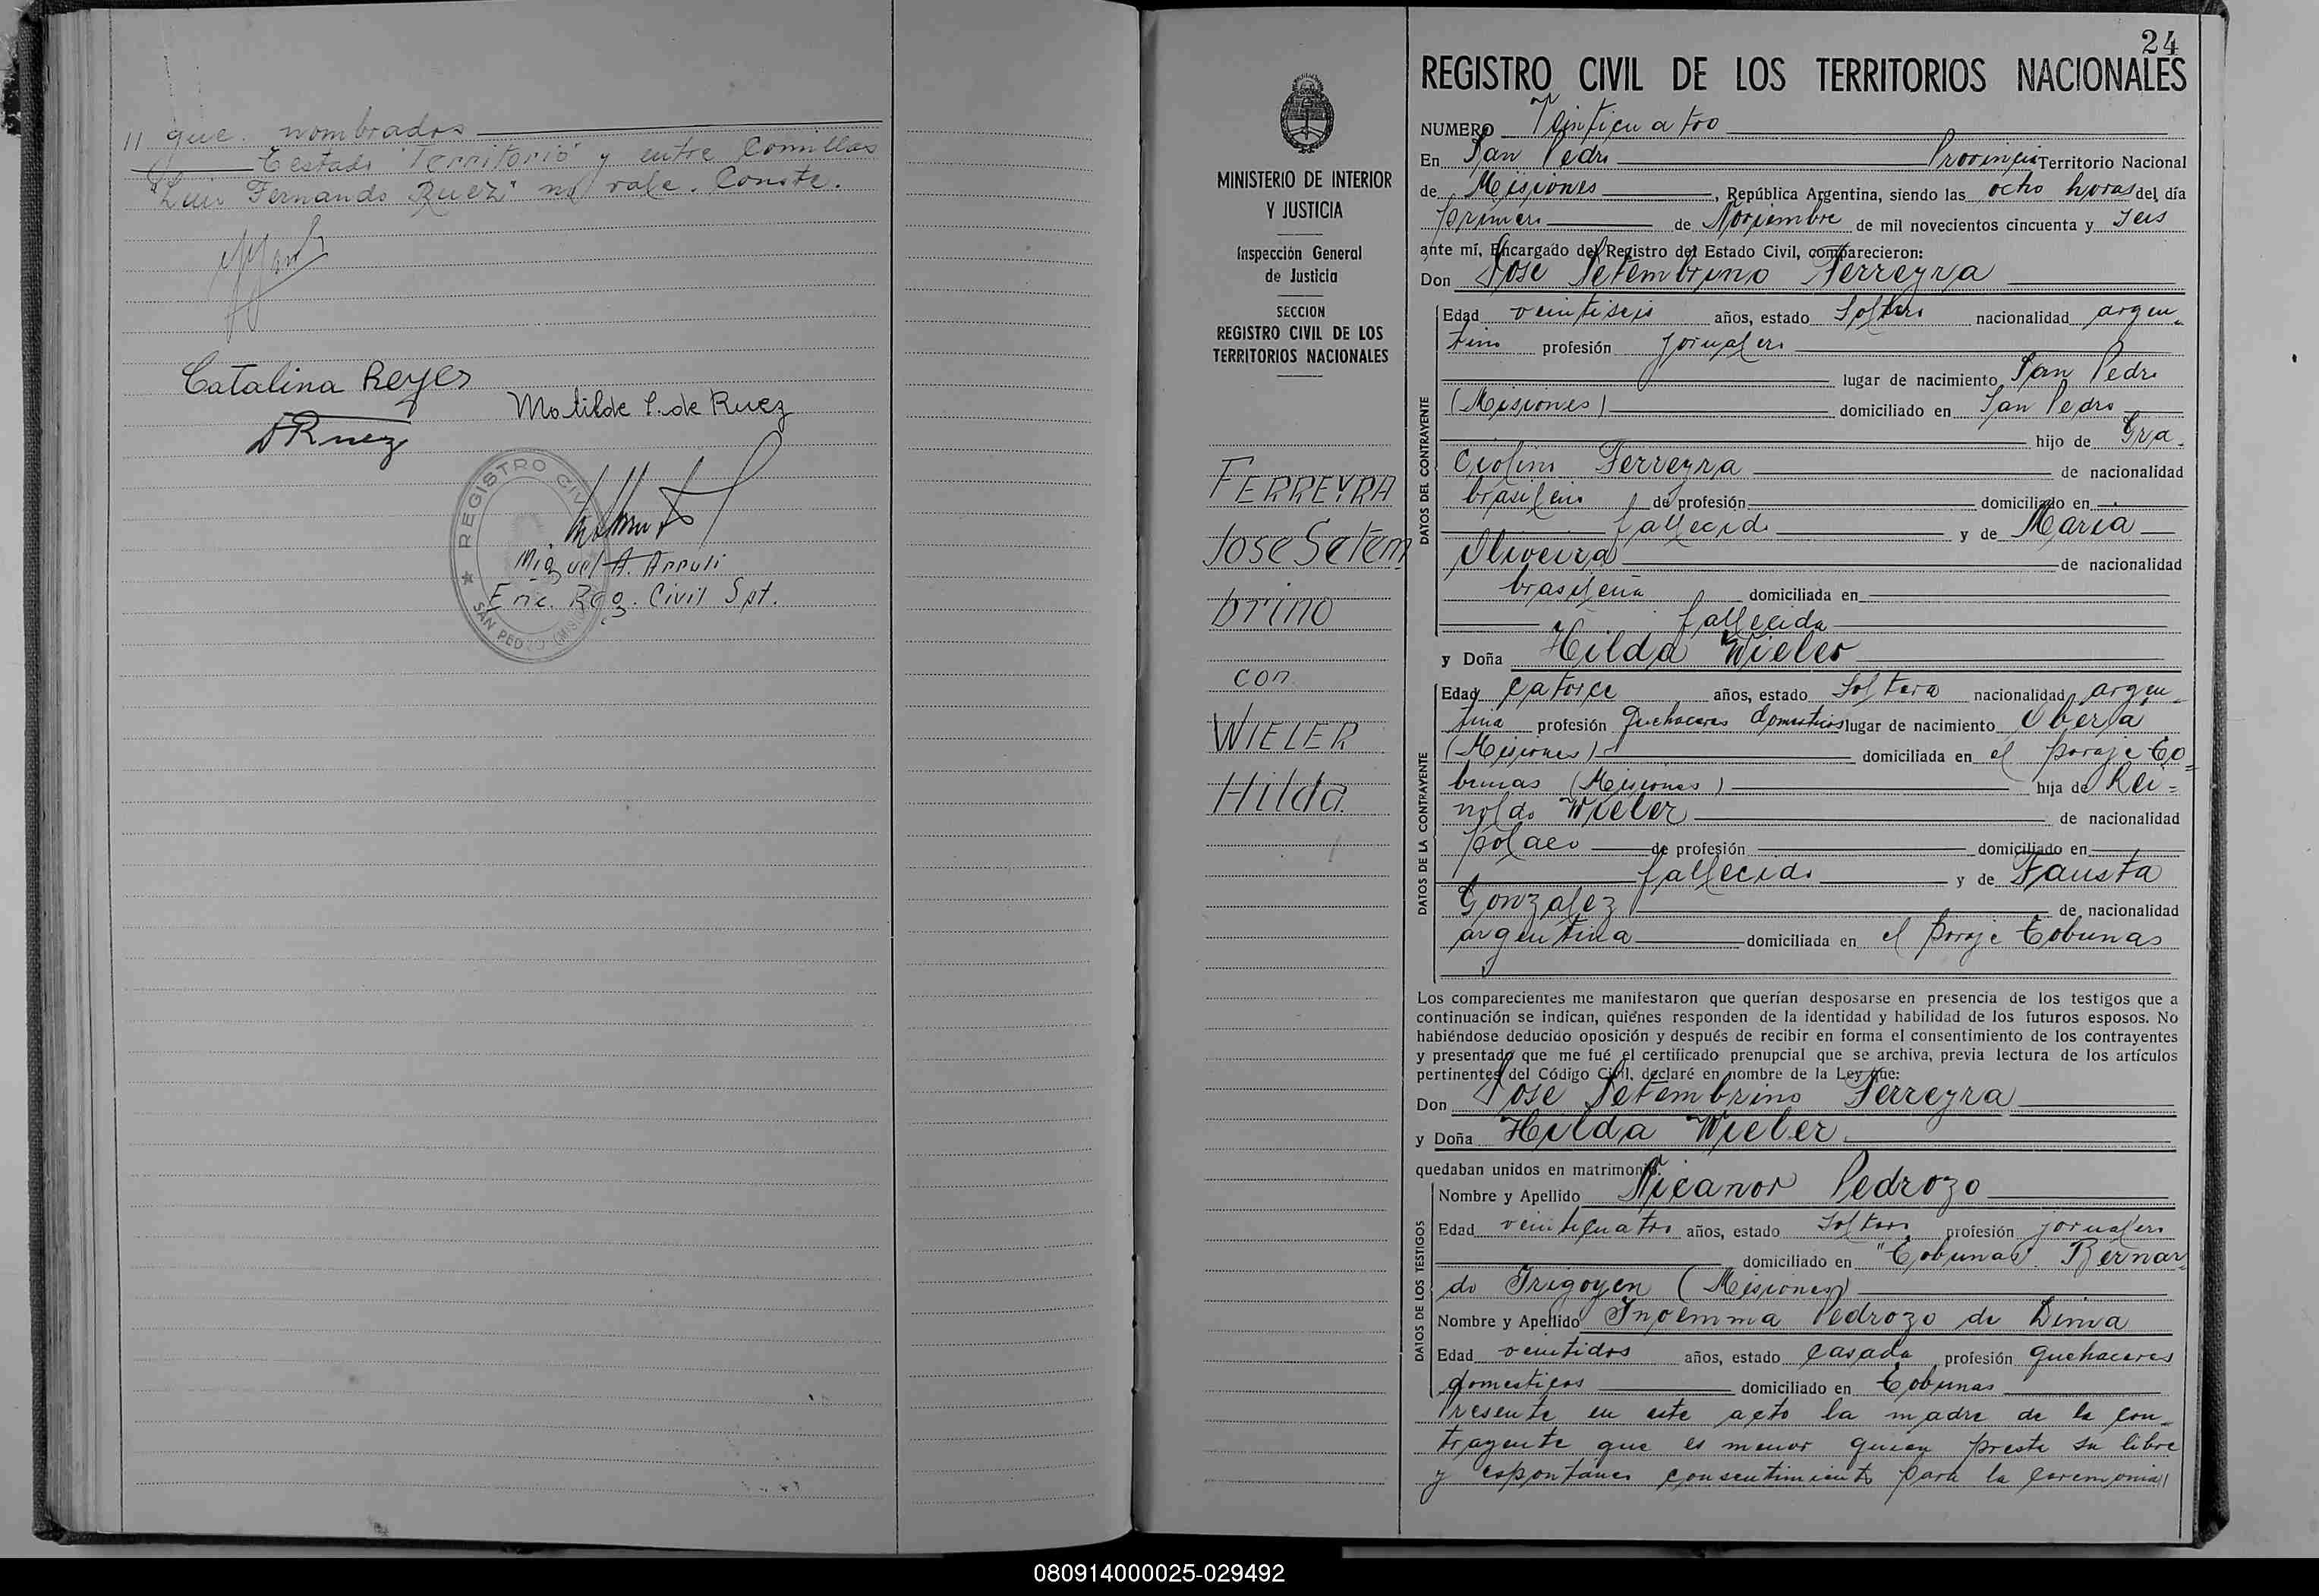 11 que. nombrados
Testado "Territorio" y entre Comillas
"Luis Fernando Ruez" no vale. Conste.
Catalina Reyes
Matilde P. de Ruez
DRuez
REGISTRO CIVIL
SAN PEDRO (MIS
Miguel A. Arruti
Enc. Reg. Civil Spt.
24
REGISTRO CIVIL DE LOS TERRITORIOS NACIONALES
MINISTERIO DE INTERIOR
Y JUSTICIA
Inspección General
de Justicia
SECCION
REGISTRO CIVIL DE LOS
TERRITORIOS NACIONALES
FERREYRA
Jose Setem
brino
con
WIELER
Hilda.
NUMERO Veinticuatro
En San Pedro Provincia Territorio Nacional
de Misiones, República Argentina, siendo las ocho horas del día
primero de Noviembre de mil novecientos cincuenta y seis
ante mí, Encargado del Registro del Estado Civil, comparecieron:
Don Jose Setembrino Ferreyra
DATOS DEL CONTRAYENTE
Edad veintiseis años, estado Soltero nacionalidad argen-
tino profesión jornalero
lugar de nacimiento San Pedro
(Misiones) domiciliado en San Pedro
hijo de Gra-
ciolino Ferreyra de nacionalidad
brasilero de profesión domiciliado en
fallecido y de Maria
Oliveira de nacionalidad
brasileña domiciliada en
fallecida
y Doña Hilda Wieler
DATOS DE LA CONTRAYENTE
Edad catorce años, estado Soltera nacionalidad argen-
tina profesión Quehaceres domesticos lugar de nacimiento Oberá
(Misiones) domiciliada en el paraje To=
bunas (Misiones) hija de Rei=
noldo Wieler de nacionalidad
polaco de profesión domiciliado en
fallecido y de Fausta
Gonzalez de nacionalidad
argentina domiciliada en el paraje Tobunas
Los comparecientes me manifestaron que querían desposarse en presencia de los testigos que a
continuación se indican, quiénes responden de la identidad y habilidad de los futuros esposos. No
habiéndose deducido oposición y después de recibir en forma el consentimiento de los contrayentes
y presentado que me fué el certificado prenupcial que se archiva, previa lectura de los artículos
pertinentes del Código Civil, declaré en nombre de la Ley que:
Don Jose Setembrino Ferreyra
y Doña Hilda Wieler
quedaban unidos en matrimonio.
DATOS DE LOS TESTIGOS
Nombre y Apellido Nicanor Pedrozo
Edad veinticuatro años, estado Soltero profesión jornalero
domiciliado en "Tobunas" Bernar-
do Irigoyen (Misiones)
Nombre y Apellido Inoemma Pedrozo de Lima
Edad veintidos años, estado Casada profesión quehaceres
domesticos domiciliado en Tobunas
Presente en este acto la madre de la con-
trayente que es menor quien presta su libre
y espontaneo consentimiento para la ceremonia//
080914000025-029492